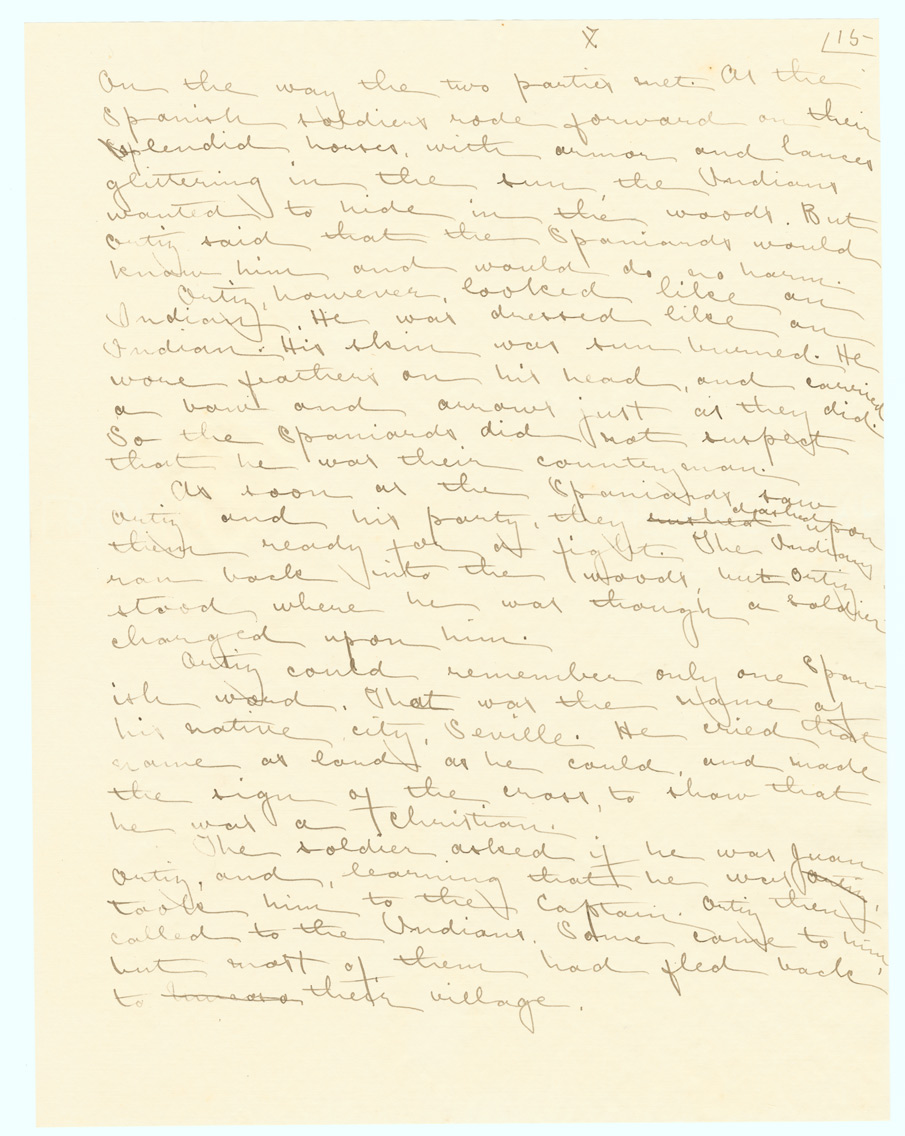 X
15
On the way the two parties met. As the
Spanish soldiers rode forward on their
splendid horses, with armor and lances
glittering in the sun the Indians
wanted to hide in the woods. But
Ortiz said that the Spaniards would
know him and would do no harm.
Ortiz, however, looked like an
Indian. He was dressed like an
Indian. His skin was sun burned. He
wore feathers on his head, and carried
a bow and arrows just as they did.
So the Spaniards did not suspect
that he was their countryman.
As soon as the Spaniards saw
Ortiz and his party, they rushed dashed upon
them ready for a fight. The Indians
ran back into the woods, but Ortiz
stood where he was though a soldier
charged upon him.
Ortiz could remember only one Span-
ish word. That was the name of
his native city, Seville. He cried that
name as loud as he could, and made
the sign of the cross, to show that
he was a Christian.
The soldier asked if he was Juan
Ortiz, and, learning that he was Ortiz,
took him to the Captain. Ortiz then
called to the Indians. Some came to him,
but most of them had fled back
to their village.